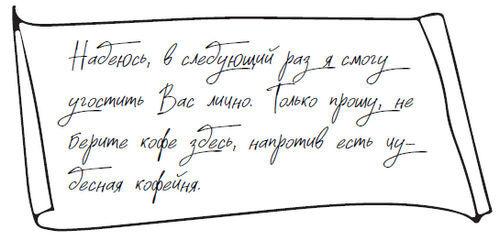 Надеюсь, в следующий раз я смогу
угостить Вас лично. Только прошу, не
берите кофе здесь, напротив есть чу-
десная кофейня.